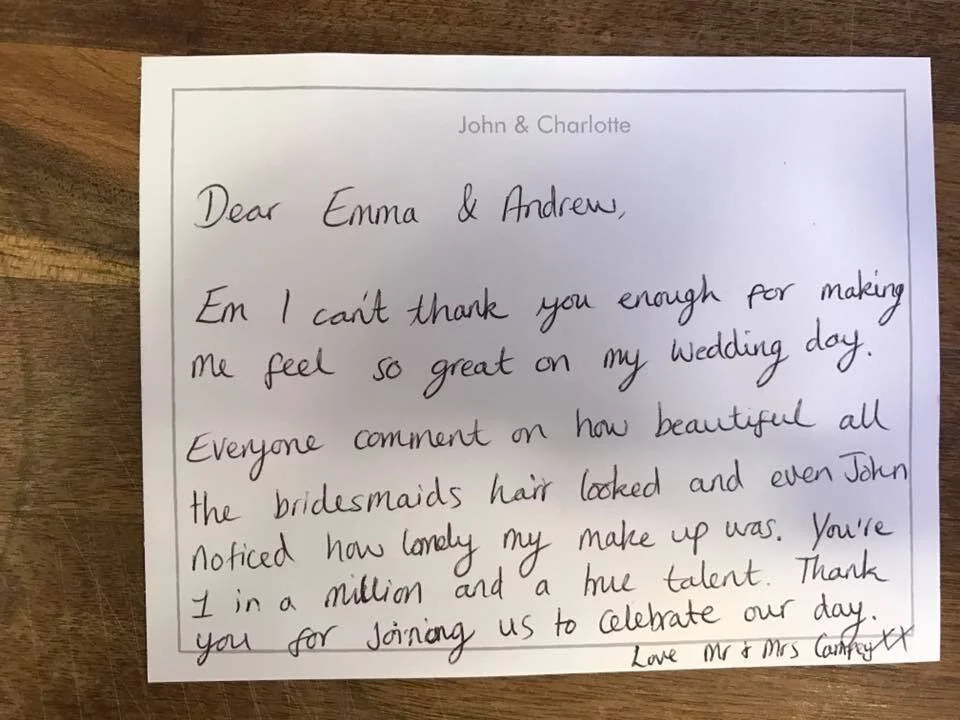 John & Charlotte
Dear Emma & Andrew,
Em I can't thank you enough for making
me feel so great on my wedding day.
Everyone comment on how beautiful all
the bridesmaids hair looked and even John
noticed how lovely my make up was. You're
1 in a million and a true talent. Thank
you for joining us to celebrate our day.
Love Mr & Mrs XX